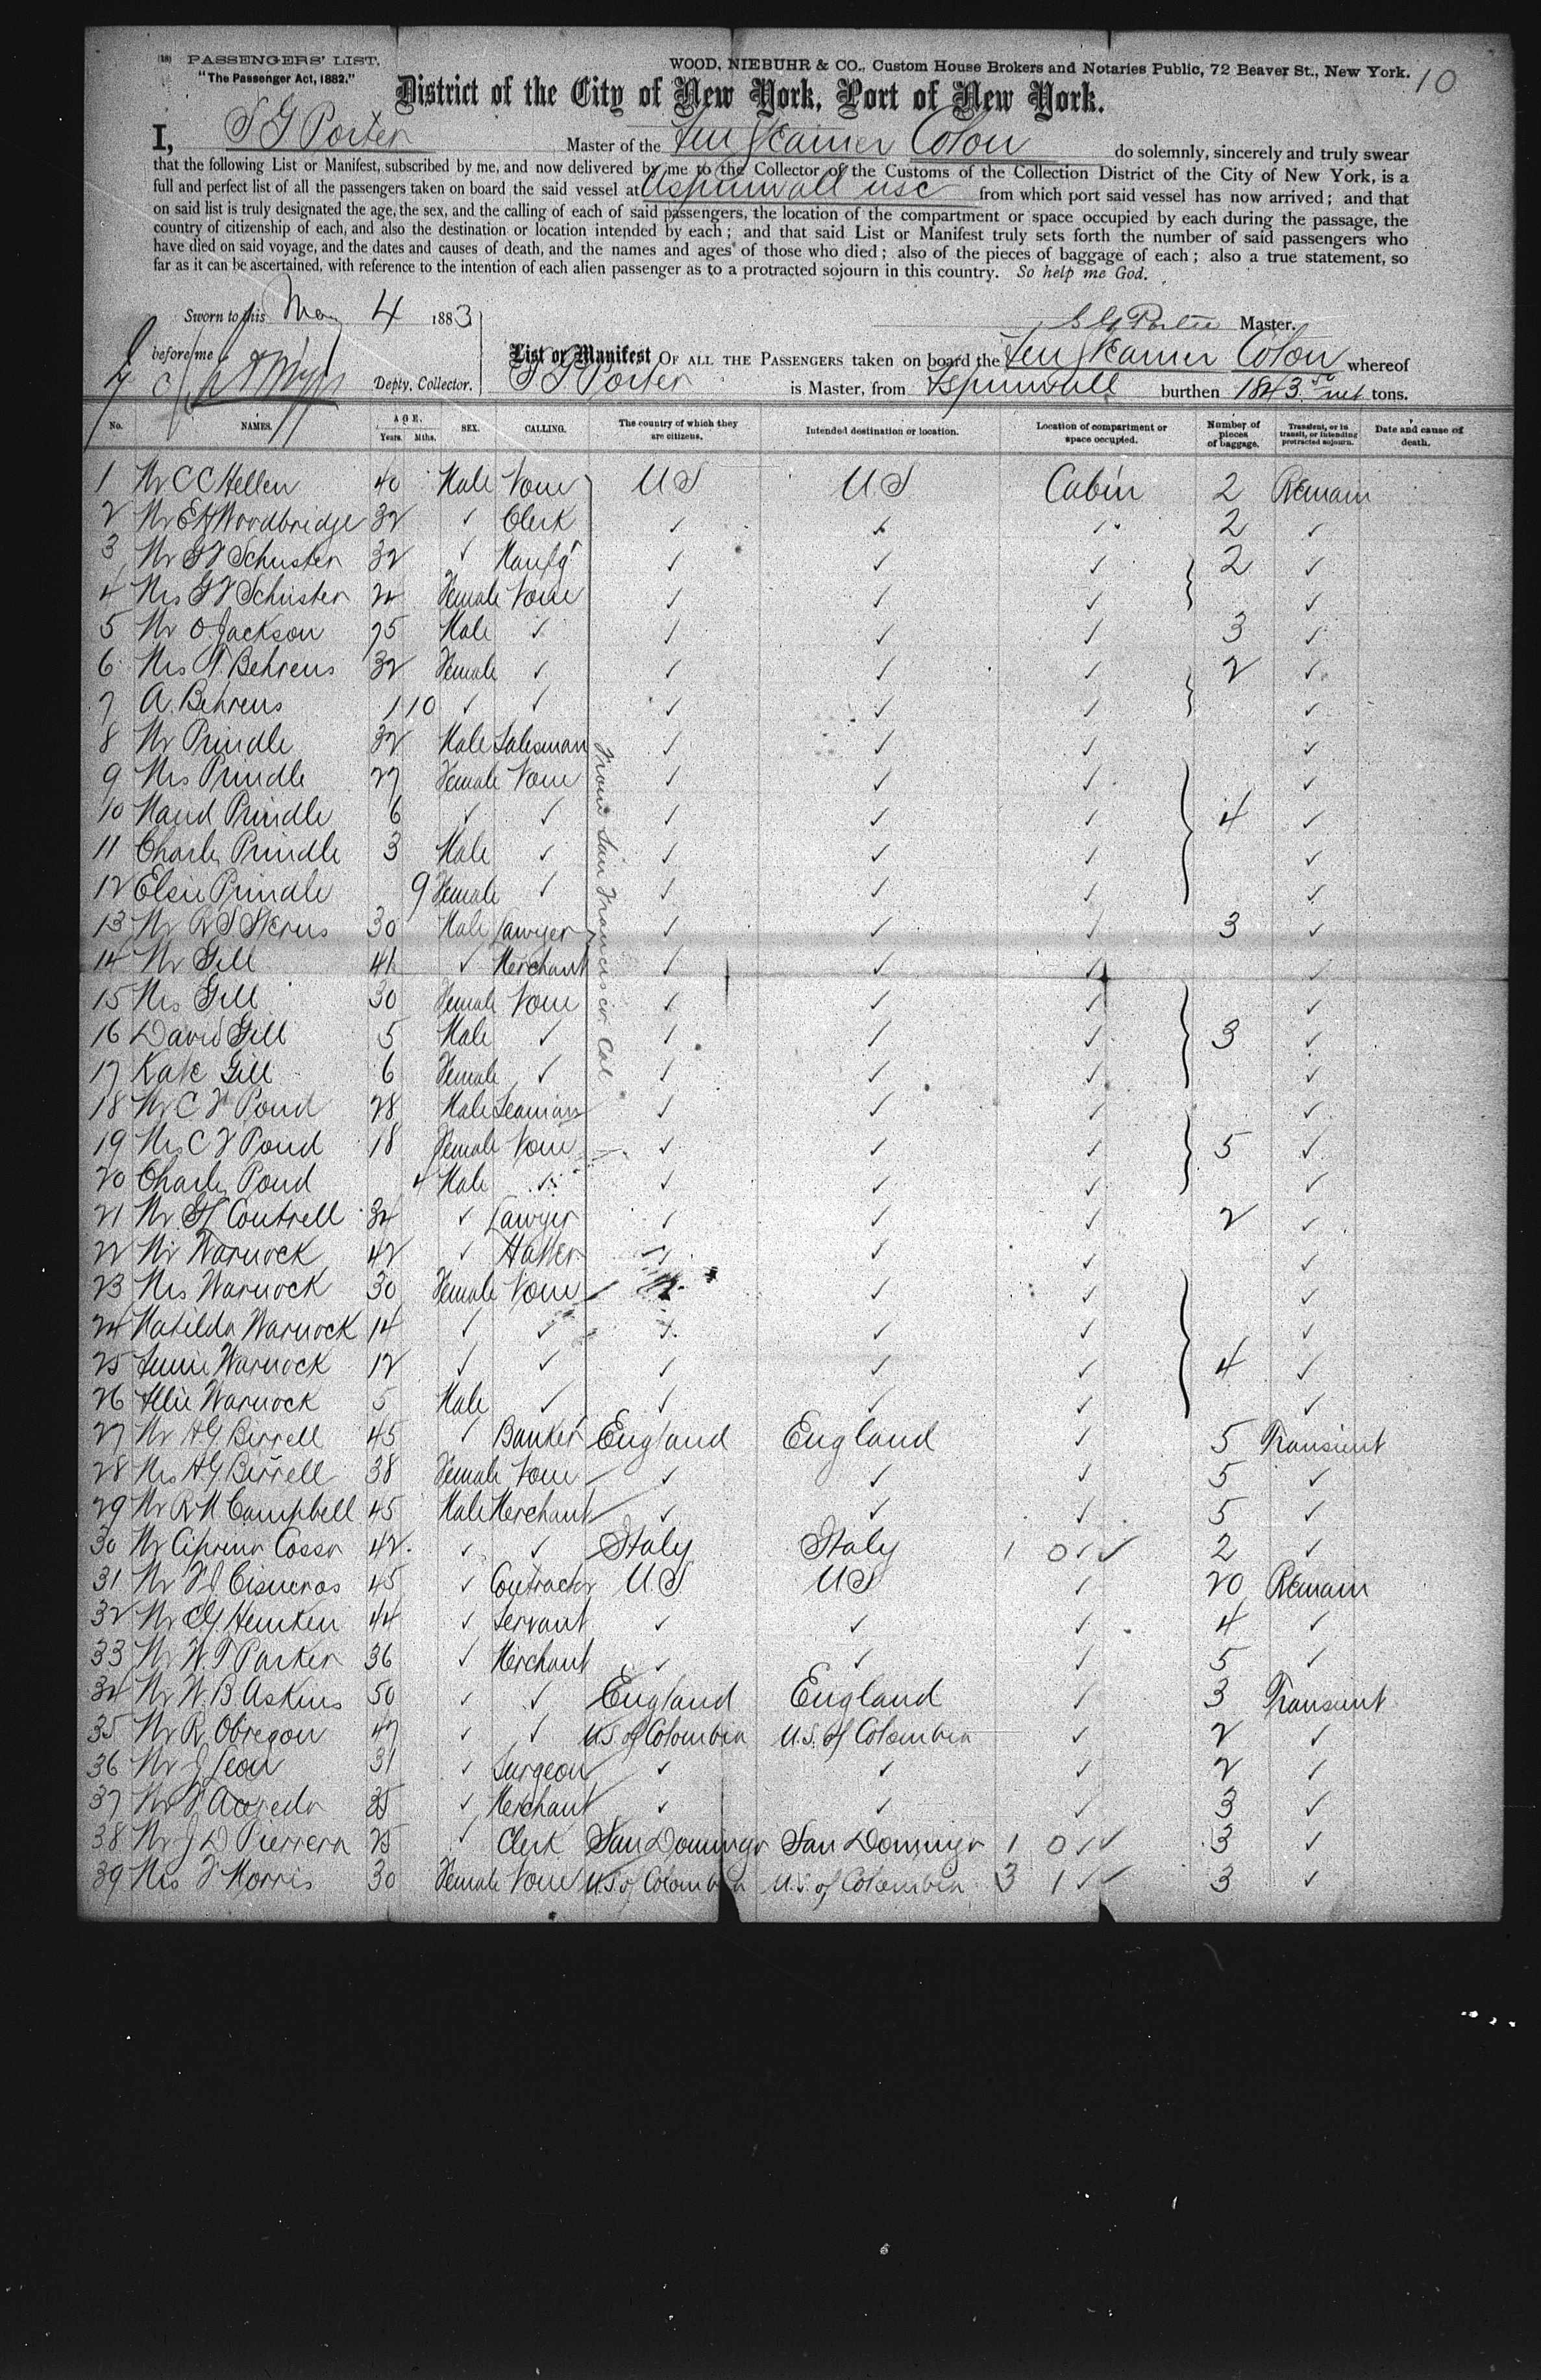 (18) PASSENGERS' LIST. WOOD, NIEBUHR & CO., Custom House Brokers and Notaries Public, 72 Beaver St., New York. 10
"The Passenger Act, 1882."
District of the City of New York, Port of New York.
I, S G Porter Master of the Steamer Colon do solemnly, sincerely and truly swear
that the following List or Manifest, subscribed by me, and now delivered by me to the Collector of the Customs of the Collection District of the City of New York, is a
full and perfect list of all the passengers taken on board the said vessel at Aspinwall usc from which port said vessel has now arrived; and that
on said list is truly designated the age, the sex, and the calling of each of said passengers, the location of the compartment or space occupied by each during the passage, the
country of citizenship of each, and also the destination or location intended by each; and that said List or Manifest truly sets forth the number of said passengers who
have died on said voyage, and the dates and causes of death, and the names and ages of those who died; also of the pieces of baggage of each; also a true statement, so
far as it can be ascertained, with reference to the intention of each alien passenger as to a protracted sojourn in this country. So help me God.
Sworn to this May 4 1883
S G Porter Master.
before me Depty. Collector.
List or Manifest OF ALL THE PASSENGERS taken on board the Steamer Colon whereof
S G Porter is Master, from Aspinwall burthen 1843 50 net tons.
No. NAMES. AGE. Years. Mths. SEX. CALLING. The country of which they are citizens. Intended destination or location. Location of compartment or space occupied. Number of pieces of baggage. Transient, or in transit, or intending protracted sojourn. Date and cause of death.
From San Francisco Cal
1 Mr C C Hellen 40 Male None U S U.S Cabin 2 Remain
2 Mr E H Woodbridge 32 ✓ Clerk ✓ ✓ ✓ 2 ✓
3 Mr G V Schuster 32 ✓ Manfg ✓ ✓ ✓ 2 ✓
4 Mrs G V Schuster 24 Female None ✓ ✓ ✓ ✓
5 Mr O Jackson 75 Male ✓ ✓ ✓ ✓ 3 ✓
6 Mrs F. Behrens 32 Female ✓ ✓ ✓ ✓ 2 ✓
7 A. Behrens 1 10 ✓ ✓ ✓ ✓ ✓ ✓
8 Mr Prindle 32 Male Salesman ✓ ✓ ✓ ✓
9 Mrs Prindle 27 Female None ✓ ✓ ✓ ✓
10 Maud Prindle 6 ✓ ✓ ✓ ✓ ✓ 4 ✓
11 Charly Prindle 3 Male ✓ ✓ ✓ ✓ ✓
12 Elsie Prindle 9 Female ✓ ✓ ✓ ✓ ✓
13 Mr R S Sterns 30 Male Lawyer ✓ ✓ ✓ 3 ✓
14 Mr Gill 41 ✓ Merchant ✓ ✓ ✓ ✓
15 Mrs Gill 30 Female None ✓ ✓ ✓ ✓
16 David Gill 5 Male ✓ ✓ ✓ ✓ 3 ✓
17 Kate Gill 6 Female ✓ ✓ ✓ ✓ ✓
18 Mr C V Pond 28 Male Seaman ✓ ✓ ✓ ✓
19 Mrs C V Pond 18 Female None ✓ ✓ ✓ 5 ✓
20 Charly Pond 4 Male ✓ ✓ ✓ ✓ ✓
21 Mr Coutrell 34 ✓ Lawyer ✓ ✓ ✓ 2 ✓
22 Mr Warnock 42 ✓ Hatter ✓ ✓ ✓ ✓
23 Mrs Warnock 30 Female None ✓ ✓ ✓
24 Matilda Warnock 14 ✓ ✓ ✓ ✓ ✓ ✓
25 Warnock 12 ✓ ✓ ✓ ✓ ✓ 4 ✓
26 Allie Warnock 5 Male ✓ ✓ ✓ ✓ ✓
27 Mr A G Birrell 45 ✓ Banker England England ✓ 5 Transient
28 Mrs A G Birrell 38 Female None ✓ ✓ ✓ 5 ✓
29 Mr R M Campbell 45 Male Merchant ✓ ✓ ✓ 5 ✓
30 Mr Ciprino Cosso 42 ✓ ✓ Italy Italy 1 0 ✓ ✓ 2 ✓
31 Mr Cisneros 45 ✓ Contractor U.S US ✓ 20 Remain
32 Mr C G. Hemken 44 ✓ Servant ✓ ✓ ✓ 4 ✓
33 Mr W. T Parker 36 ✓ Merchant ✓ ✓ ✓ 5 ✓
34 Mr W. B. Askins 50 ✓ ✓ England England ✓ 3 Transient
35 Mr R. Obregon 47 ✓ ✓ U.S. of Colombia U.S. of Colombia ✓ 2 ✓
36 Mr J Leon 31 ✓ Surgeon ✓ ✓ ✓ 2 ✓
37 Mr Acevedo 35 ✓ Merchant ✓ ✓ ✓ 3 ✓
38 Mr J D Pierrera 25 ✓ Clerk San Domingo San Domingo 1 0 ✓ ✓ 3 ✓
39 Mrs F Morris 30 Female None U.S of Colombia U.S. of Colombia 3 1 ✓ ✓ 3 ✓